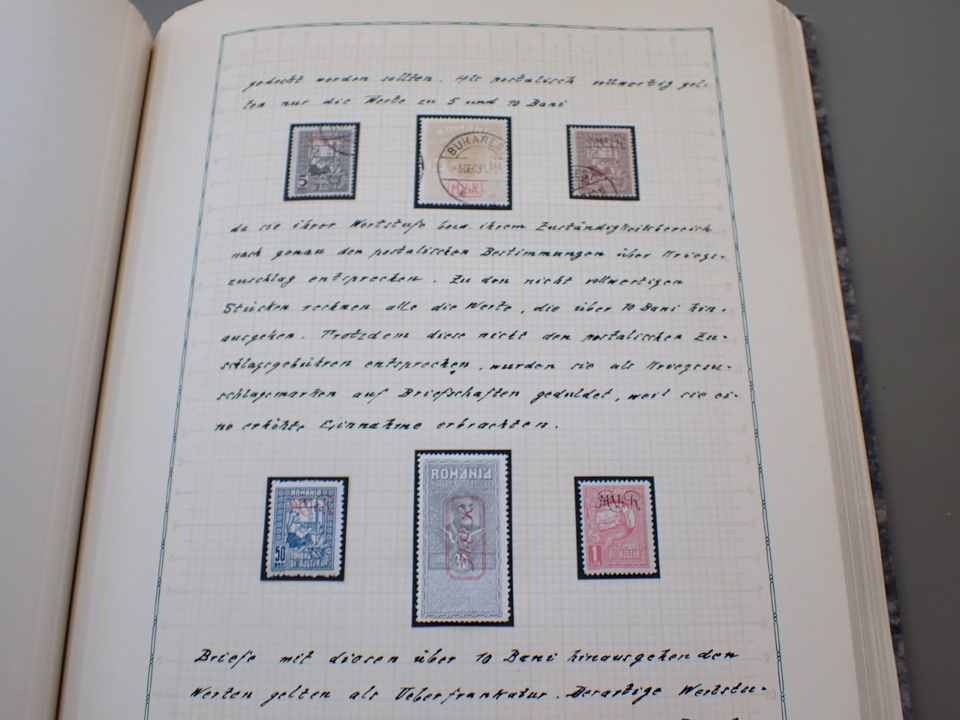 gedeckt werden sollten. Als postalisch vollwertig gel-
ten nur die Werte zu 5 und 10 Bani
5
BUKARES
M.V.i.R.
da sie ihrer Wertstufe bzw ihrem Zuständigkeitsbereich
nach genau den postalischen Bestimmungen über Kriegs-
zuschlag entsprechen. Zu den nicht vollwertigen
Stücken rechnen alle die Werte, die über 10 Bani hin-
ausgehen. Trotzdem diese nicht den postalischen Zu-
schlagsgebühren entsprechen, wurden sie als Kriegszu-
schlagsmarken auf Briefschaften geduldet, weil sie ei-
ne erhöhte Einnahme erbrachten.
ROMANIA
50
TIMBRU
DE AJUTOR
ROMANIA
M.V.i.R.
1
TIMBRU
DE AJUTOR
Briefe mit diesen über 10 Bani hinausgehenden
Werten gelten als Ueberfrankatur. Derartige Wertstu-